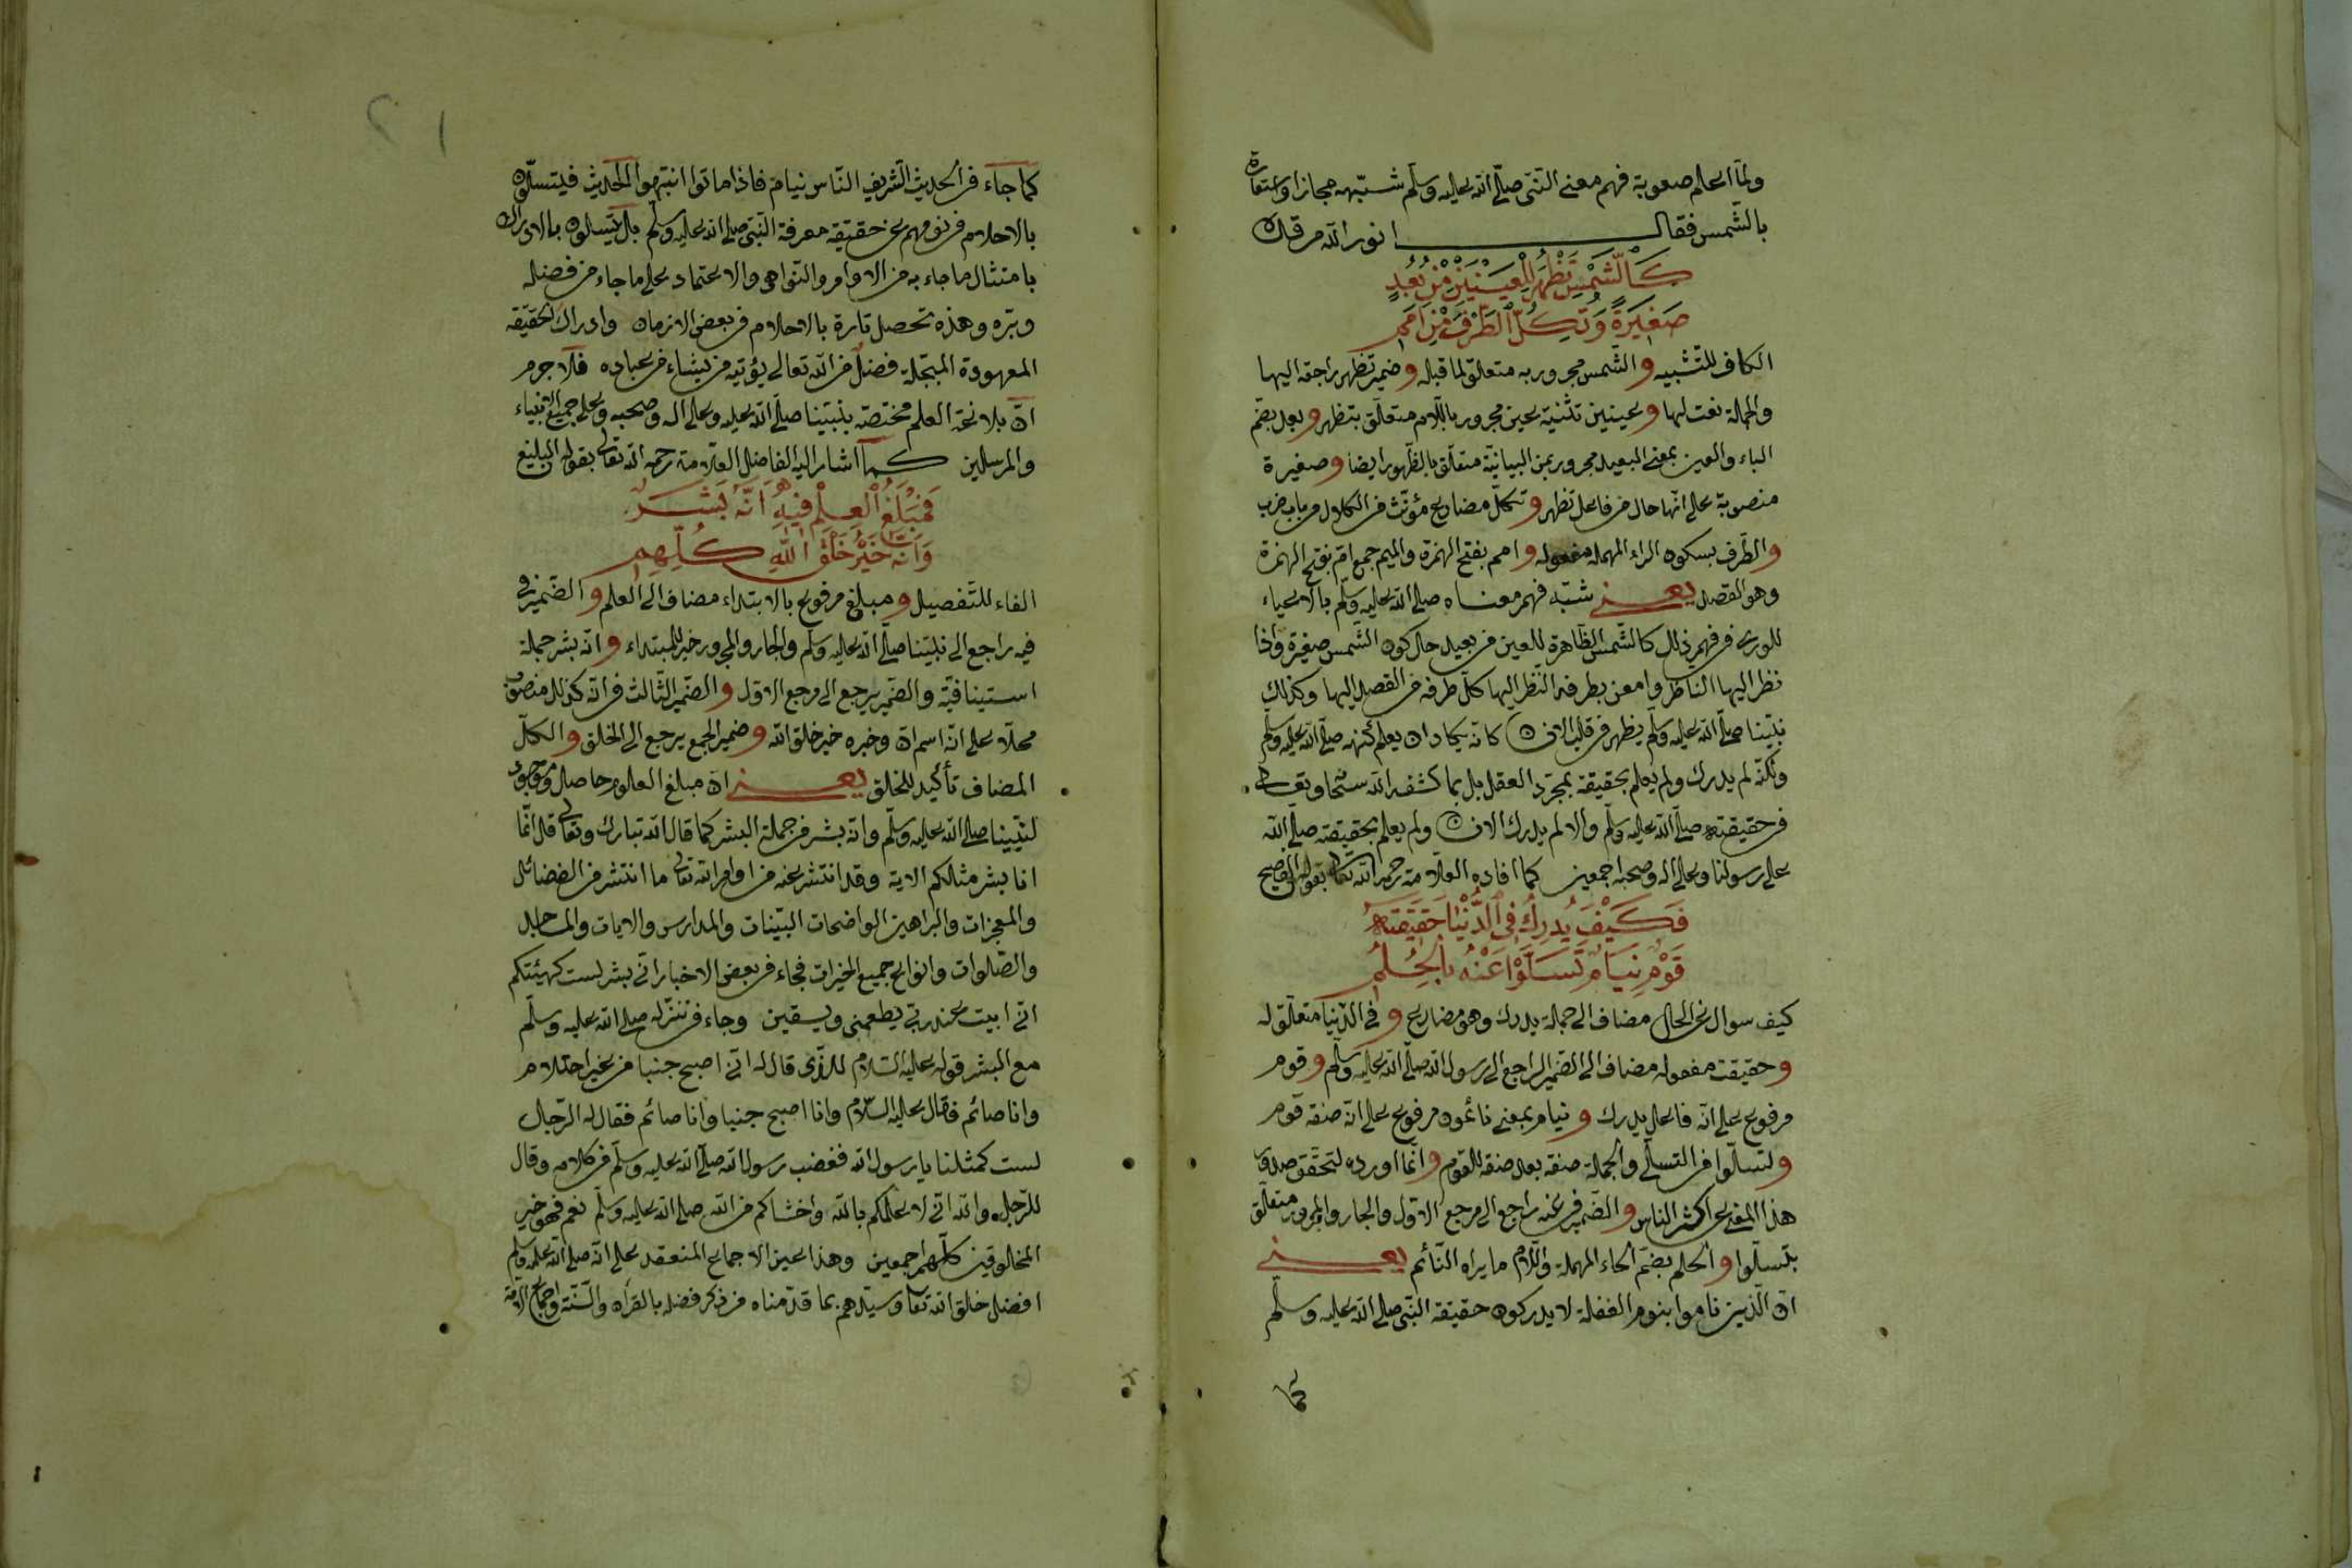 ولما اعلم صعوبة فهم معنى النبى صلى الله عليه وسلم شبهه مجازا واستعارة
بالشمس فقال انور الله مرقده
كَالشَّمْسِ تَظْهَرُ لِلْعَيْنَيْنِ مِنْ بُعُدٍ
صَغِيرَةً وَتُكِلُّ الطَّرْفَ مِنْ اَمَمِ
الكاف للتشبيه والشمس مجرور به متعلق لما قبله وضمير تظهر راجعة اليها
والجملة نعت لها وعينين تثنية عين مجرور باللام متعلق بتظهر وبعد بضم
الباء والعين بمعنى البعيد مجرور بمن البيانية متعلق بالظهور ايضا وصغيرة
منصوبة على انها حال من فاعل تظهر وتكل مضارع مؤنث من الكلال من باب ضرب
والطرف بسكون الراء المهملة مفعوله وامم بفتح الهمزة والميم جمع ام بفتح الهمزة
وهو القصد يعنى شبه فهم معناه صلى الله عليه وسلم بالاعياء
للورى فى فهم ذلك كالشمس الظاهرة للعين من بعيد حال كون الشمس صغيرة واذا
نظر اليها الناظر وامعن بطرفه النظر اليها كل طرفه من القصد اليها وكذلك
نبينا صلى الله عليه وسلم يظهر فى قلب الان كانه يكاد ان يعلم كنهه صلى الله عليه وسلم
ولكنه لم يدرك ولم يعلم بحقيقة بمجرد العقل بل بما كشفه الله سبحانه وتعالى
فى حقيقته صلى الله عليه وسلم والا لم يدرك الان ولم يعلم بحقيقته صلى الله
على رسولنا وعلى اله وصحبه اجمعين كما افاده العلامة رحمه الله تعالى بقوله الفصيح
فَكَيْفَ يُدْرِكُ فِى الدُّنْيَا حَقِيقَتَهُ
قَوْمٌ نِيَامٌ تَسَلَّوْا عَنْهُ بِالْحُلُمِ
كيف سوال عن الحال مضاف الى جملة يدرك وهو مضارع وفى الدنيا متعلق له
وحقيقت مفعوله مضاف الى الضمير الراجع الى رسول الله صلى الله عليه وسلم وقوم
مرفوع على انه فاعل يدرك ونيام بمعنى نائمون مرفوع على انه صفة قوم
وتسلوا من التسلى والجملة صفة بعد صفة للقوم وانما اورده لتحقق صدق
هذا المعنى على اكثر الناس والضمير فى عنه راجع الى مرجع الاول والجار والمجرور متعلق
بتسلوا والحلم بضم الحاء المهملة واللام ما يراه النائم يعنى
ان الذين ناموا بنوم الغفلة لا يدركون حقيقة النبى صلى الله عليه وسلم
كما
كما جاء فى الحديث الشريف الناس نيام فاذا ماتوا انتبهوا الحديث فيتسلون
بالاحلام فى نومهم عن حقيقة معرفة النبى صلى الله عليه وسلم بل يتسلون بالادراك
بامتثال ما جاء به من الاوامر والنواهى والاعتماد على ما جاء من فضله
وبره وهذه تحصل تارة بالاحلام فى بعض الازمان وادراك الحقيقة
المعهودة المبجلة فضل من الله تعالى يؤتيه من يشاء من عباده فلا جرم
ان بلاغة العلم مختصة بنبينا صلى الله عليه وعلى اله وصحبه وعلى جميع الانبياء
والمرسلين كما اشار اليه الفاضل العلامة رحمه الله تعالى بقوله البليغ
فَمَبْلَغُ الْعِلْمِ فِيهِ اَنَّهُ بَشَرٌ
وَاَنَّهُ خَيْرُ خَلْقِ اللهِ كُلِّهِمِ
الفاء للتفصيل ومبلغ مرفوع بالابتداء مضاف الى العلم والضمير فى
فيه راجع الى نبينا صلى الله عليه وسلم والجار والمجرور خبر للمبتداء وانه بشر جملة
استينافية والضمير يرجع الى مرجع الاول والضمير الثالث فى انه كذلك منصوب
محلا على انه اسم ان وخبره خير خلق الله وضمير الجمع يرجع الى الخلق والكل
المضاف تأكيد للخلق يعنى ان مبلغ العلوم حاصل وموجود
لنبينا صلى الله عليه وسلم وانه بشر من جملة البشر كما قال الله تبارك وتعالى قل انما
انا بشر مثلكم الاية وقد انتشر عنه من اوامر الله تعالى ما انتشر من الفضائل
والمعجزات والبراهين الواضحات البينات والمدارس والايات والمساجد
والصلوات وانواع جميع الخيرات فجاء فى بعض الاخبار انى بشر لست كهيئتكم
انى ابيت عند ربى يطعمنى ويسقين وجاء فى تنزله صلى الله عليه وسلم
مع البشر قوله عليه السلام للذى قال له انى اصبح جنبا من غير احتلام
وانا صائم فقال عليه السلام وانا اصبح جنبا وانا صائم فقال له الرجال
لست كمثلنا يا رسول الله فغضب رسول الله صلى الله عليه وسلم من كلامه وقال
للرجل والله انى لاعلمكم بالله واخشاكم من الله صلى الله عليه وسلم نعم فهو خير
المخلوقين كلهم اجمعين وهذا عين الاجماع المنعقد على انه صلى الله عليه وسلم
افضل خلق الله تعالى وسيدهم بما قدمناه من ذكر فضله بالقرآن والسنة واجماع الامة